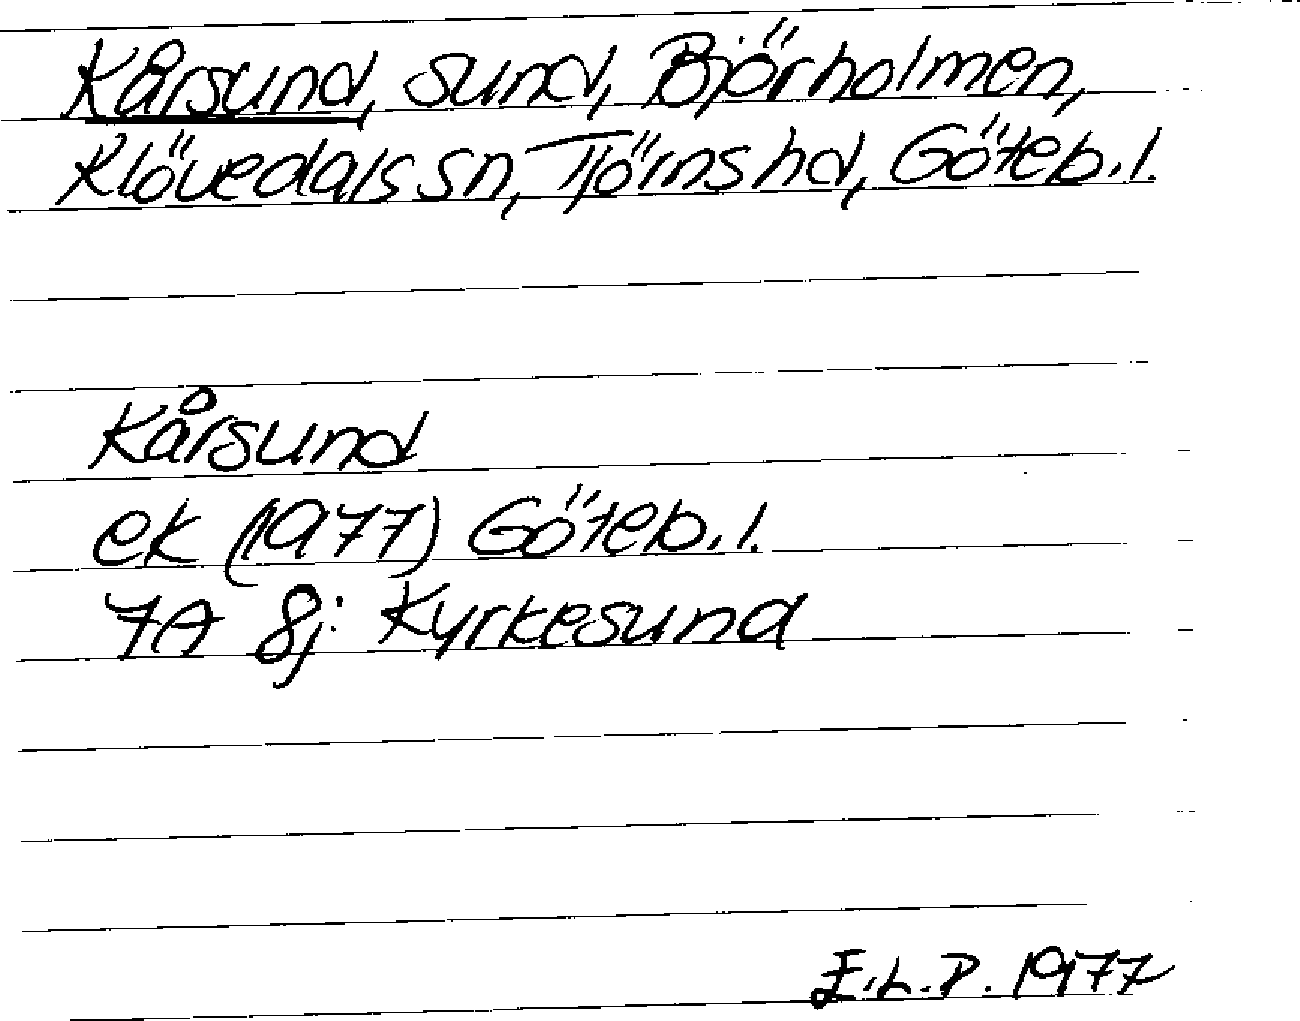 Kårsund, sund, Björholmen,
Klövedals sn, Tjörns hd, Göteb. l.
Kårsund
ek (1977) Göteb. l.
7A 8j: Kyrkesund
E.L.P. 1977